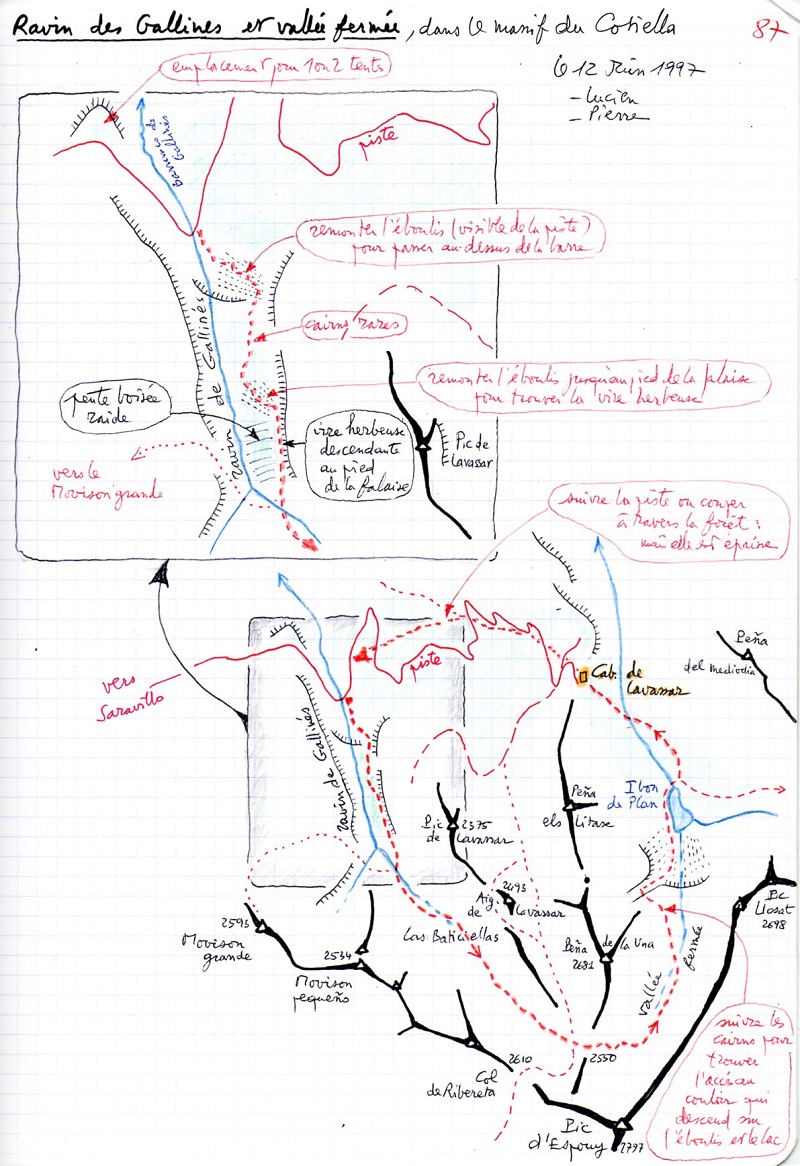 Ravin des Gallines et vallée fermée, dans le massif du Cotiella
87
le 12 Juin 1997
- Lucien
- Pierre
emplacement pour 1 ou 2 tents
Barranco de
Gallinés
piste
remonter l'éboulis (visible de la piste)
pour passer au-dessus de la barre
cairns rares
remonter l'éboulis jusqu'au pied de la falaise
pour trouver la vire herbeuse
ravin de Gallinés
pente boisée
raide
vire herbeuse
descendante
au pied
de la falaise
Pic de
Lavassar
vers le
Movison grande
suivre la piste ou couper
à travers la forêt :
mais elle est épaisse
piste
vers
Saravillo
Cab. de
Lavassar
Peña
del mediodia
Ravin de Gallinés
Ibon
de Plan
Peña
els Litase
Pic 2375
de Lavassar
2493
Aig.
de Lavassar
Bc
Llosat
2698
2593
Movison
grande
Las Baticiellas
Peña de la Una
2681
vallée fermée
2534
Movison
pequeño
suivre les
cairns pour
trouver
l'accès au
couloir qui
descend sur
l'éboulis et le lac
2610
2550
Col
de Ribereta
Pic
d'Espouy
2797